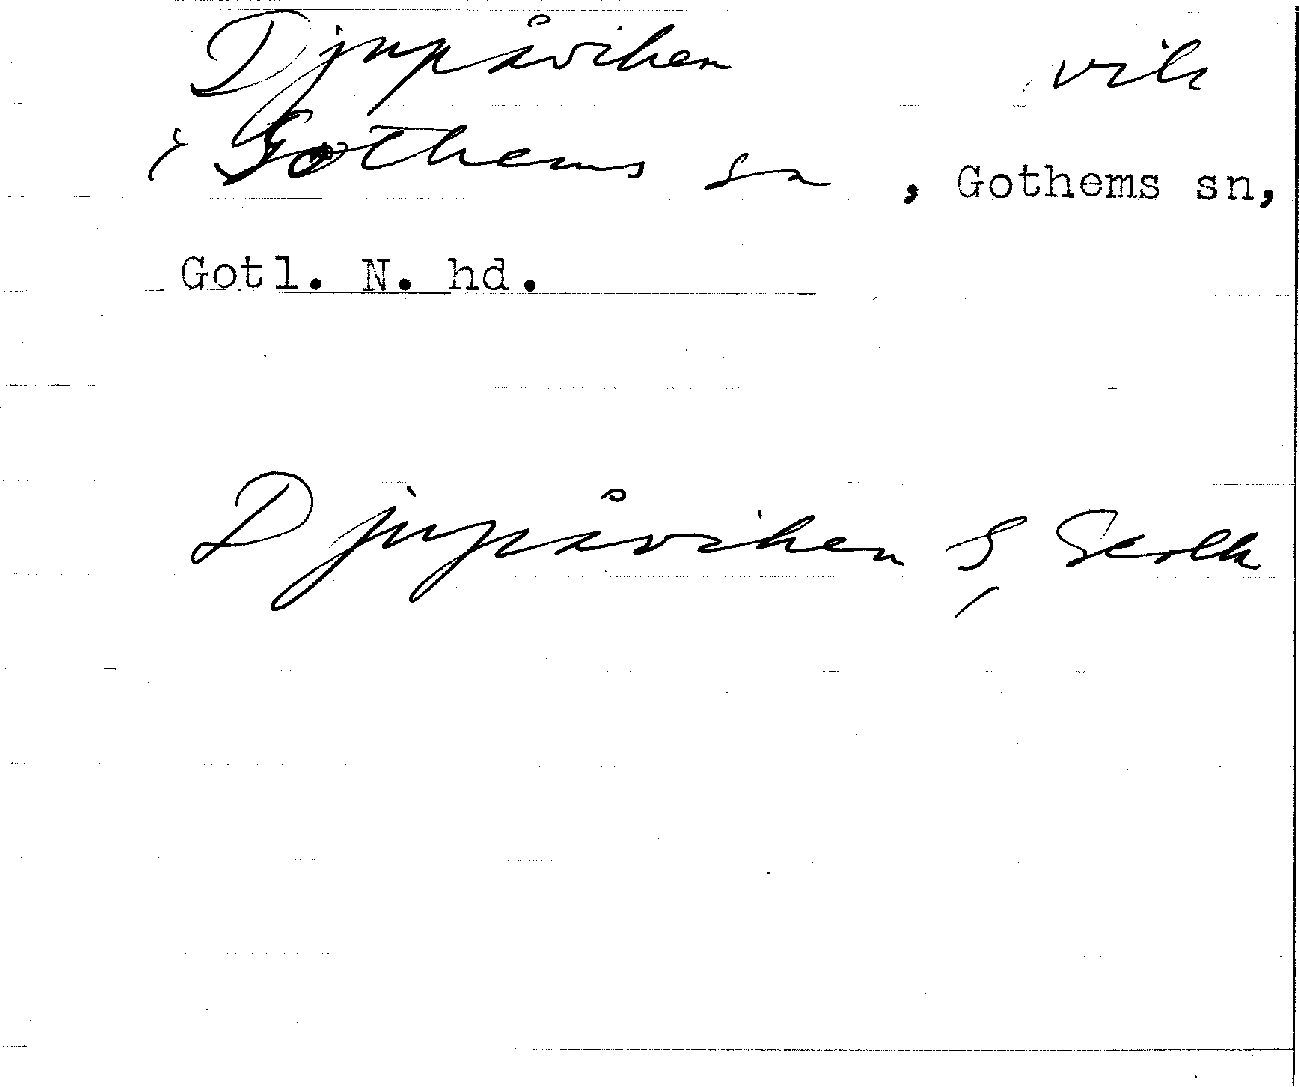 Djupåviken vik
i Gothems sn , Gothems sn,
Gotl. N. hd.
Djupåviken